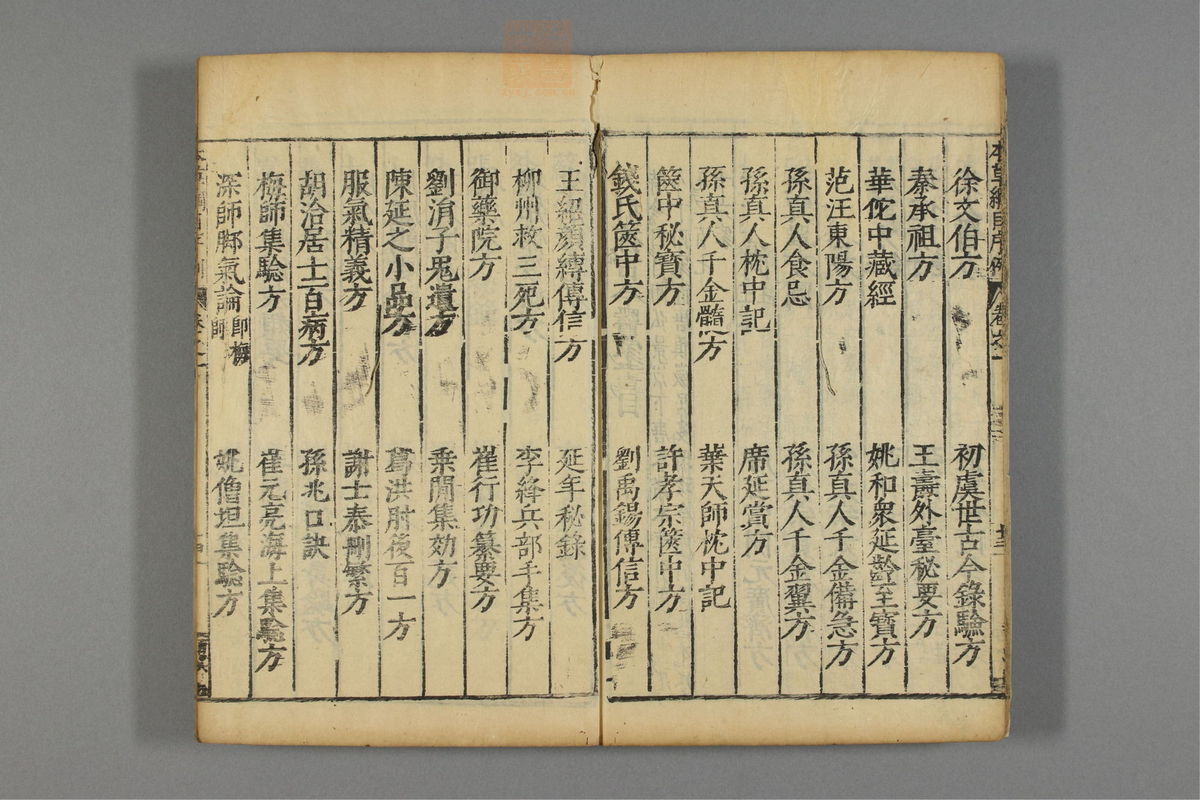 徐文伯方　初虞世古今錄驗方
秦承祖方　王壽外臺秘要方
華佗中藏經　姚和衆延齡至寶方
范汪東陽方　孫真人千金備急方
孫真人食忌　孫真人千金翼方
孫真人枕中記　席延賞方
孫真人千金髓方　葉天師枕中記
篋中秘寳方　許孝宗篋中方
錢氏篋中方　劉禹錫傳信方
王紹顔續傳信方　延年秘錄
柳州救三死方　李絳兵部手集方
御藥院方　崔行功纂要方
劉涓子鬼遺方　乘閒集効方
陳延之小品方　葛洪肘後百一方
服氣精義方　謝士泰刪繁方
胡洽居士百病方　孫兆口訣
梅師集驗方　崔元亮海上集驗方
深師脚氣論即梅師　姚僧坦集驗方